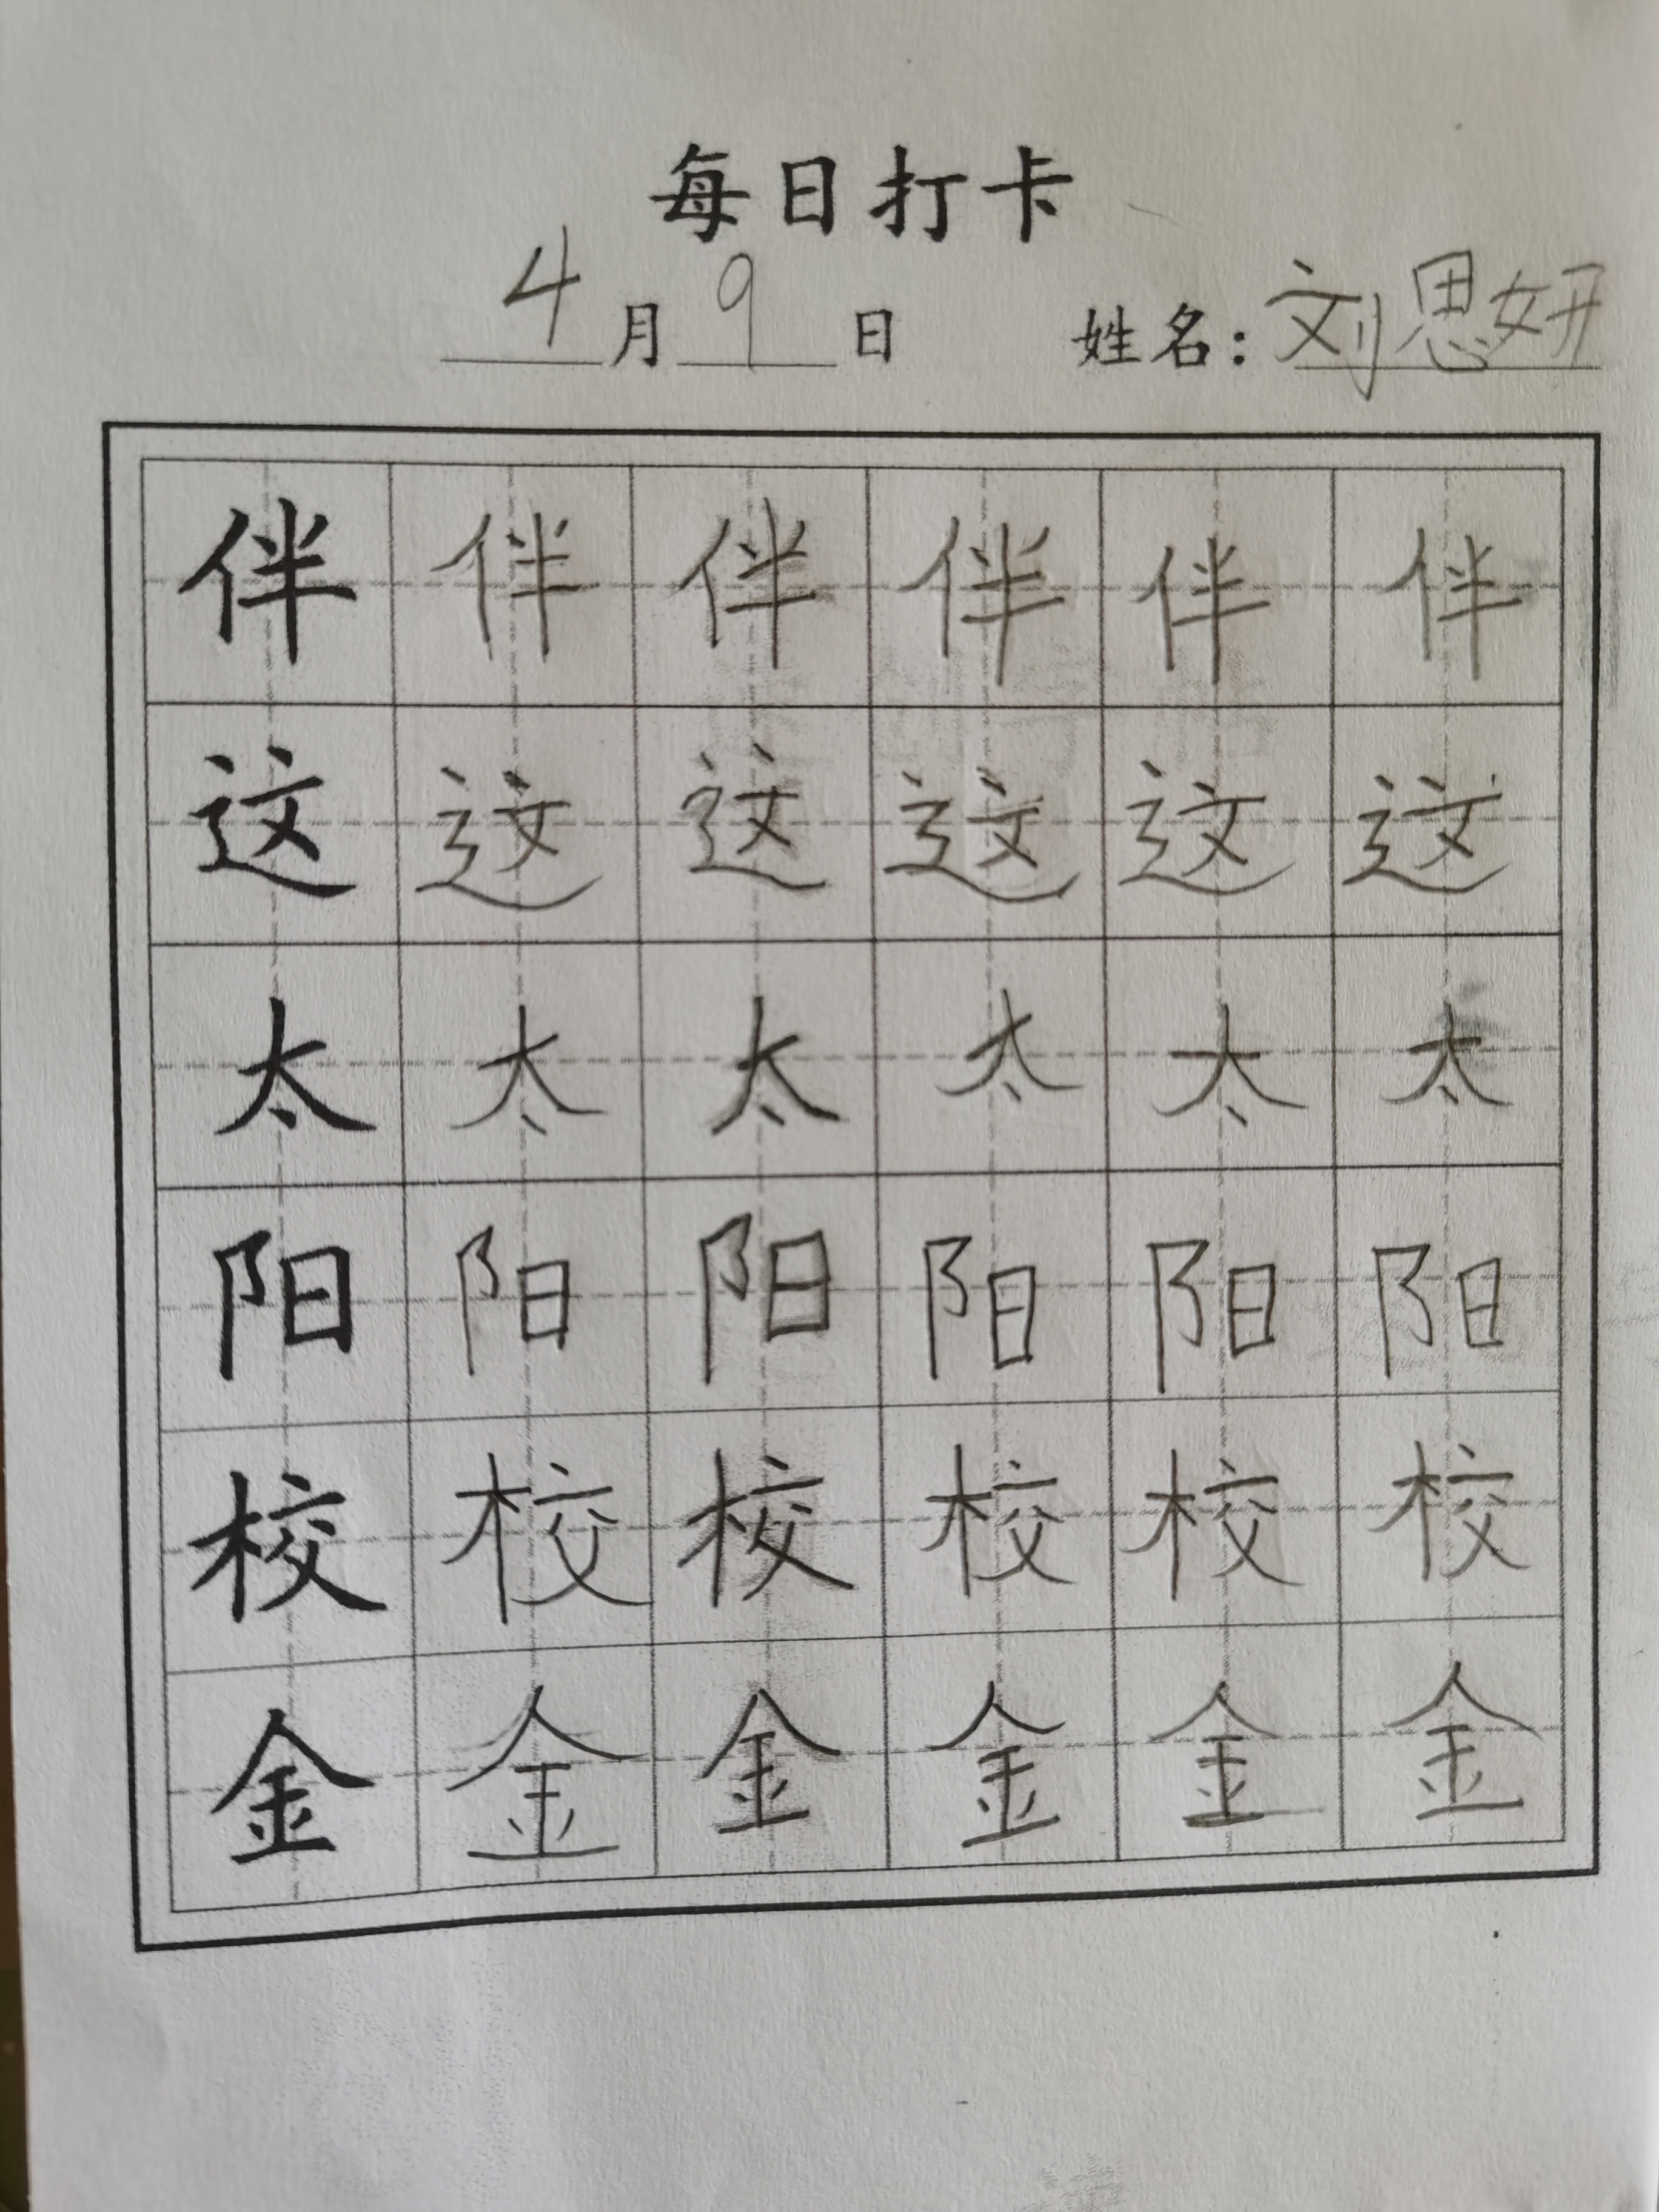 每日打卡
4月9日 姓名：刘思妍
伴伴伴伴伴伴
这这这这这这
太太太太太太
阳阳阳阳阳阳
校校校校校校
金金金金金金